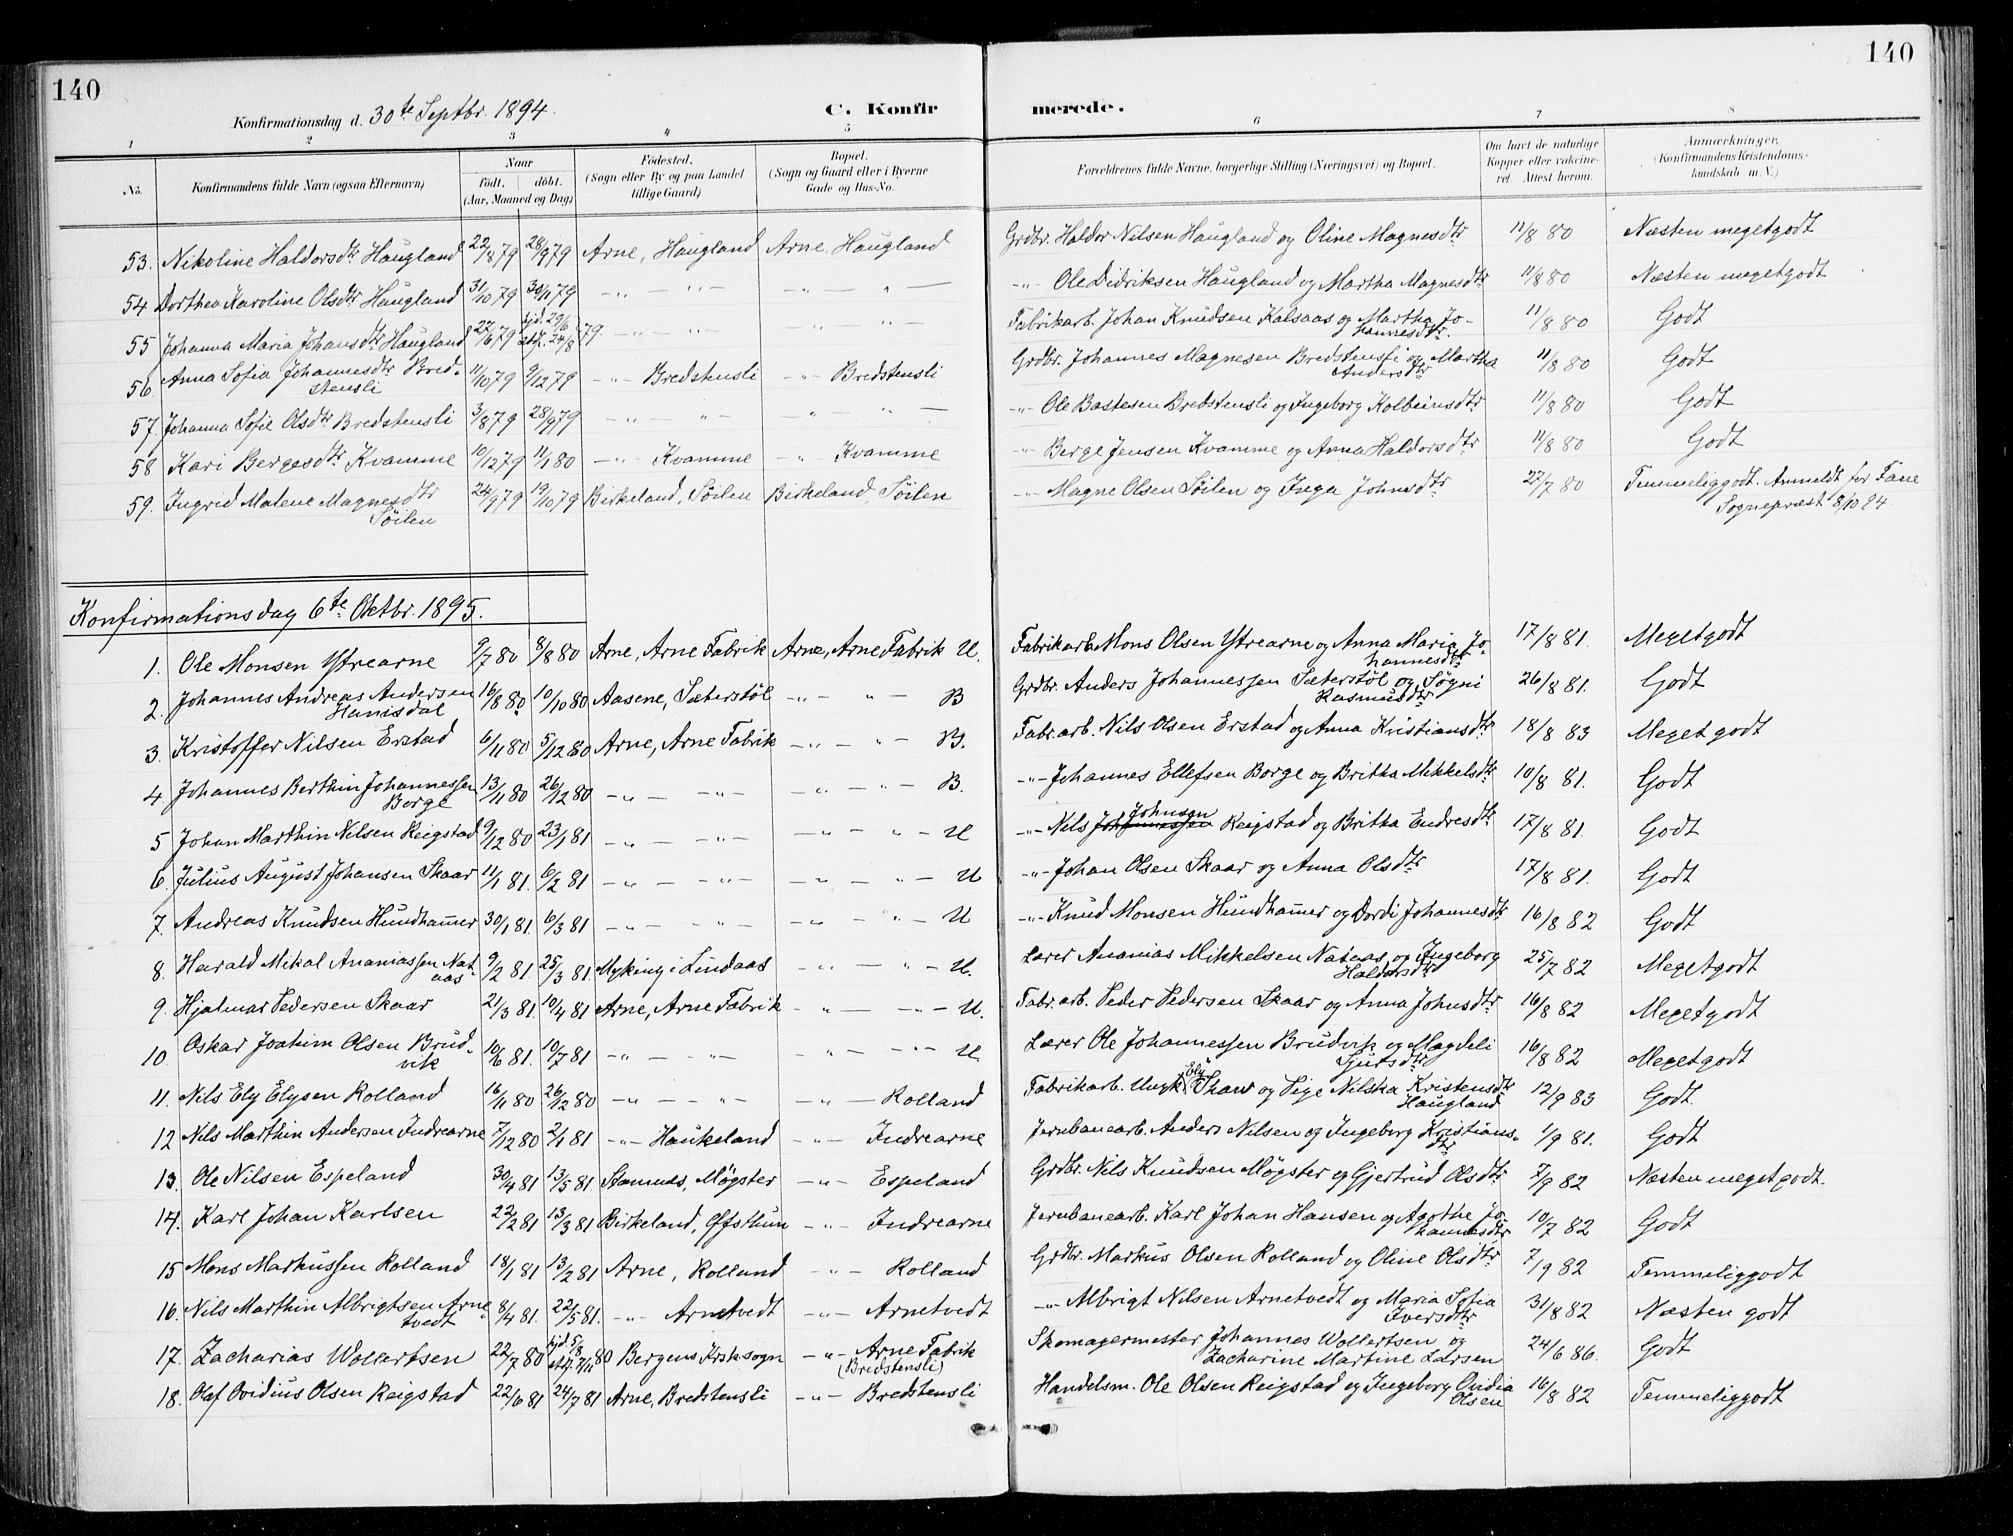 140
140
Konfirmationsdag d. 30te Septbr. 1894.
C. Konfir merede.
1 2 3 4 5 6 7 8
No. Konfirmandens fulde Navn (ogsaa Efternavn) Naar født. døbt. (Aar, Maaned og Dag) Fødested. (Sogn eller By og paa Landet tillige Gaard) Bopæl. (Sogn og Gaard eller i Byerne Gade og Hus-No. Forældrenes fulde Navne, borgerlige Stilling (Næringsvei) og Bopæl. Om havt de naturlige Kopper eller vakcineret. Attest herom. Anmærkninger. (Konfirmandens Kristendomskundskab m. V.)
53. Nikoline Haldorsdtr Haugland 22/8 79 28/9 79 Arne, Haugland Arne, Haugland Grdbr. Haldor Nilsen Haugland og Oline Magnesdtr 11/8 80 Næsten megetgodt
54 Dorthea Karoline Olsdtr Haugland 31/10 79 30/11 79 -"- -"- -"- " - -"- Ole Didriksen Haugland og Martha Magnesdtr 11/8 80 Næsten megetgodt
55 Johanna Maria Johansdtr Haugland 27/6 79 hjd. 29/6 stf. 24/8 79 -"- -"- -"- " " Fabrikarb. Johan Knudsen Kalsaas og Martha Johannesdtr. 11/8 80 Godt
56. Anna Sofia Johannesdtr Bredstensli 11/10 79 9/12 79 -"- Bredstensli -"- Bredstensli Grdbr. Johannes Magnesen Bredstensli og Martha Andersdtr 11/8 80 Godt
57. Johanna Sofie Olsdtr Bredstensli 3/8 79 28/9 79 -"- "- -"- " - -"- Ole Bastesen Bredstensli og Ingeborg Kolbeinsdtr 11/8 80 Godt
58 Kari Bergesdtr Kvamme 10/12 79 11/1 80 -"- Kvamme -"- Kvamme -"- Berge Jensen Kvamme og Anna Haldorsdtr 11/8 80 Godt
59. Ingrid Malene Magnesdtr Söilen 24/9 79 19/10 79 Birkeland, Söilen Birkeland, Söilen -"- Magne Olsen Söilen og Inga Johnsdtr 27/7 80 Temmeliggodt. Anmeldt for Fane Sognepræst 8/10 94.
Konfirmationsdag 6te Oktbr. 1895.
1. Ole Monsen Ytrearne 9/7 80 8/8 80 Arne, Arne Fabrik Arne, Arne Fabrik U. Fabrikarb. Mons Olsen Ytrearne og Anna Maria Johannesdtr 17/8 81. Megetgodt
2. Johannes Andreas Andersen Hunisdal 16/8 80 10/10 80 Aasene, Sæterstöl -"- -"- B Grdbr. Anders Johannessen Sæterstöl og Søgni Rasmusdtr 26/8 81. Godt
3. Kristoffer Nilsen Erstad 6/11 80 5/12 80 Arne, Arne Fabrik -"- -"- B. Fabr.arb. Nils Olsen Erstad og Anna Kristiansdtr 18/8 83 Megetgodt
4 Johannes Berthin Johannessen Borge 13/11 80 26/12 80 -"- -"- -"- -"- B. -"- Johannes Ellefsen Borge og Britha Mikkelsdtr 10/8 81. Godt
5 Johan Marthin Nilsen Reigstad 9/12 80 23/1 81 -"- -"- -"- -"- U -"- Nils Johannessen Johnsen Reigstad og Britha Endresdtr 17/8 81. Godt
6. Julius August Johansen Skaar 11/1 81. 6/2 81 -"- -"- -"- -"- U -"- Johan Olsen Skaar og Anna Olsdtr 17/8 81. Godt
7. Andreas Knudsen Hundhamer 30/1 81. 6/3 81 -"- -"- -"- -"- U -"- Knud Monsen Hundhamer og Dordi Johannesdtr 16/8 82 Godt
8. Harald Mikal Ananiassen Nataas 9/2 81. 25/3 81 Myking i Lindaas -"- -"- U. Lærer Ananias Mikkelsen Nataas og Ingeborg Haldorsdtr 25/7 82 Megetgodt
9. Hjalmar Pedersen Skaar 21/3 81. 10/4 81 Arne, Arne Fabrik -"- -"- U. Fabr.arb. Peder Pedersen Skaar og Anna Johnsdtr 16/8 82 Megetgodt
10. Oskar Joakim Olsen Brudvik 10/6 81. 10/7 81 -"- -"- -"- -"- U Lærer Ole Johannessen Brudvik og Magdeli Sjursdtr 16/8 82 Megetgodt
11. Nils Ely Elysen Rolland 16/11 80 26/12 80 -"- -"- -"- Rolland Fabrikarb. Ungk. Ely Skaar og Pige Nilska Kristensdtr Haugland 12/9 83 Godt
12 Nils Marthin Andersen Indrearne 7/12 80 2/1 81 -"- Haukeland -"- Indrearne Jernbanearb. Anders Nilsen og Ingeborg Kristiansdtr 1/9 81. Godt
13. Ole Nilsen Espeland 30/4 81 13/5 81 Stamnæs, Møgster -"- Espeland Grdbr. Nils Knudsen Møgster og Gjertrud Olsdtr 7/9 82 Næsten megetgodt.
14. Karl Johan Karlsen 22/2 81 13/3 81 Birkeland, Øfsthun -"- Indrearne Jernbanearb. Karl Johan Hansen og Agothe Johannesdtr 10/7 82 Godt
15 Mons Markussen Rolland 18/1 81 13/2 81 Arne, Rolland -"- Rolland Grdbr. Markus Olsen Rolland og Oline Olsdtr 7/9 82 Temmeliggodt
16. Nils Marthin Albrigtsen Arnetvedt 8/4 81. 22/5 81. -"- Arnetvedt -"- Arnetvedt -"- Albrigt Nilsen Arnetvedt og Maria Sofia Iversdtr 31/8 82 Næsten godt
17. Zacharias Wollertsen 22/7 80 hjd. 5/8 stf. 7/11 80 Bergens Krsk.sogn -"- Arne Fabrik (Bredstensli) Skomagermester Johannes Wollertsen og Zacharine Martine Larsen 24/6 86. Godt
18. Olaf Ovidius Olsen Reigstad 22/6 81 24/7 81 Arne, Bredstensli -"- Bredstensli Handelsm. Ole Olsen Reigstad og Ingeborg Ovidia Olsen 16/8 82 Temmeliggodt